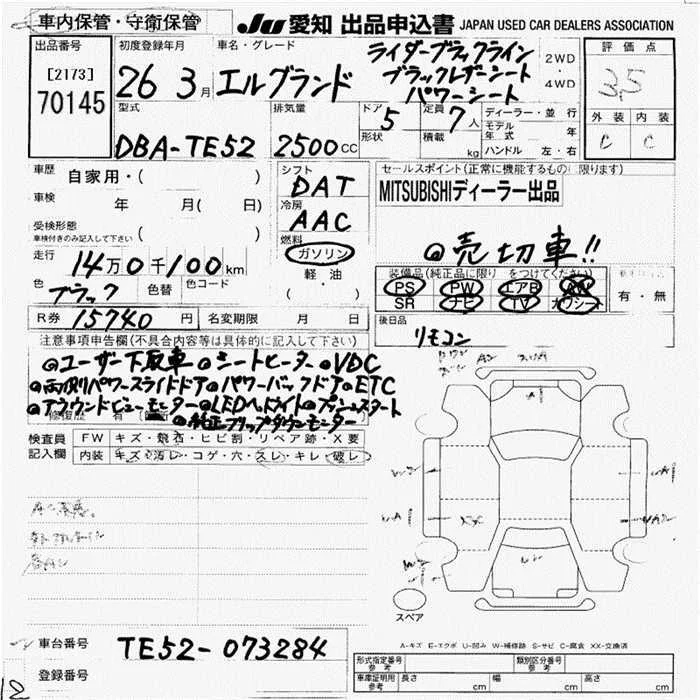 車内保管・守衛保管
JU 愛知 出品申込書 JAPAN USED CAR DEALERS ASSOCIATION
出品番号
[2173]
70145
初度登録年月
26 3月
車名・グレード
エルグランド
ライダーブラックライン
ブラックレザーシート
パワーシート
2WD
・
4WD
評価点
3.5
外装 内装
C C
型式
DBA-TE52
排気量
2500cc
ドア 5
形状
定員 7人
積載 kg
ディーラー・並行
モデル年式 年
ハンドル 左・右
車歴
自家用・( )
車検
年 月( 日)
受検形態
車検付きのみ記入して下さい ( )
走行
14万0千100km
色
ブラック
色替
色コード
( )
シフト
DAT
冷房
AAC
燃料
ガソリン
軽・油
( )
セールスポイント(正常に機能するもの 限ります)
MITSUBISHIディーラー出品
◎売切車!!
装備品(純正品に限り をつけてください)
PS PW エアB AW
SR ナビ TV カワシート
有・無
R券 15740円
名変期限 月 日
後日品
リモコン
注意事項申告欄(不具合内容等は具体的に記入して下さい)
◎ユーザー下取車◎シートヒーター◎VDC
◎両側パワースライドドア◎パワーバックドア◎ETC
◎アラウンドビューモニター◎LEDヘッドライト◎プッシュスタート
◎純正フリップダウンモニター
修復歴 有
検査員
記入欄
FW キズ・飛石・ヒビ割・リペア跡・X要
内装 キズ・汚レ・コゲ・穴・スレ・キレ・破レ
スペア
A-キズ E-エクボ U-凹み W-補修跡 S-サビ C-腐食 XX-交換済
車台番号
TE52-073284
登録番号
12
形式指定番号
参考
類別区分番号
参考
車庫証明用
参考
長さ cm 幅 cm 高さ cm